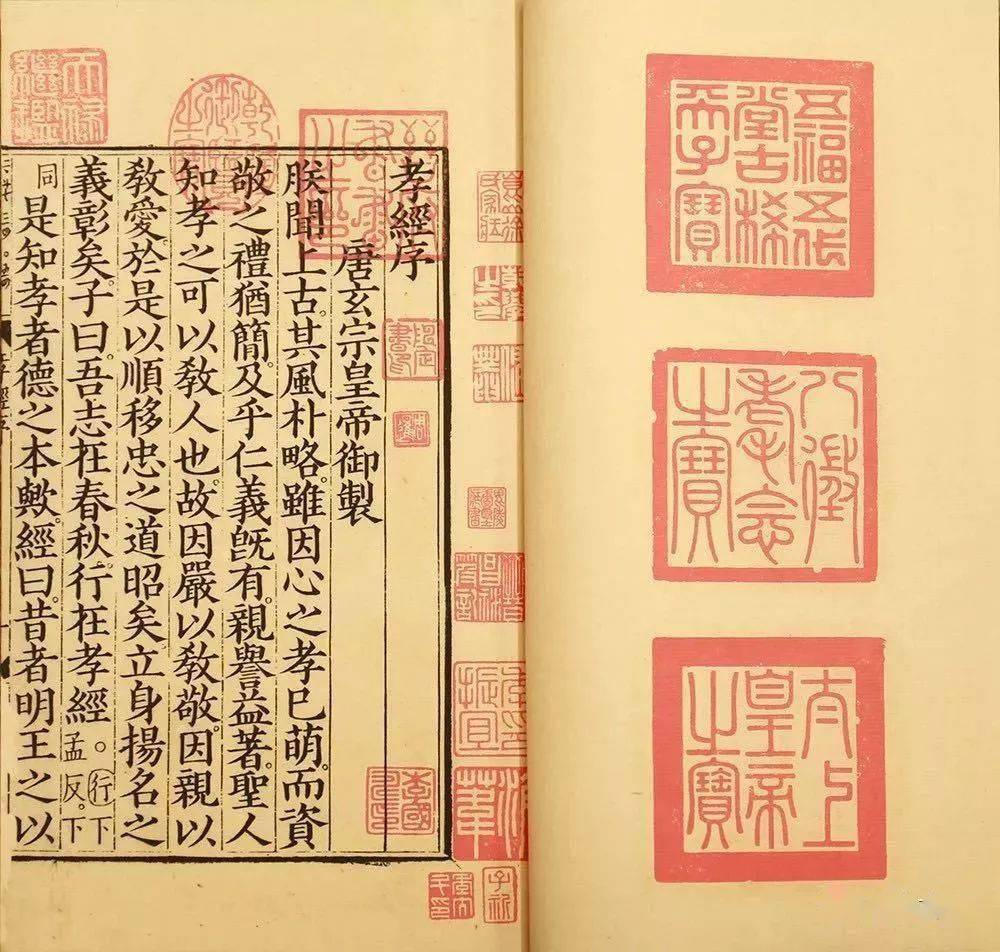 五福五代
堂古稀
天子寶
八徵
耄念
之寶
太上
皇帝
之寶
季
振宜
滄
葦
孝經序
唐玄宗皇帝御製
朕聞上古。其風朴略。雖因心之孝已萌。而資
敬之禮猶簡。及乎仁義旣有。親譽益著。聖人
知孝之可以敎人也。故因嚴以敎敬。因親以
敎愛。於是以順移忠之道昭矣。立身揚名之
義彰矣。子曰。吾志在春秋。行在孝經。行下孟反。下
同是知孝者德之本歟。經曰。昔者明王之以
乾隆
御覽
之寶
天祿
繼鑑